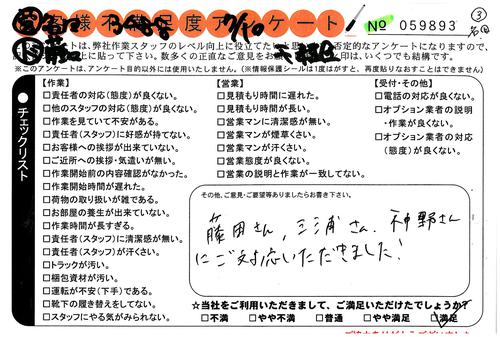 お客様不満足度アンケート
№ 059893
③
は、弊社作業スタッフのレベル向上に役立てたい
否定的なアンケートになりますので、
に貼って下さい。数多くの正直なご意見を
印は、いくつでも結構です。
※このアンケートは、アンケート目的以外には使用いたしません。(※情報保護シールは1度はがすと、再度貼りなおすことはできません)
●チェックリスト
【作業】
□責任者の対応(態度)が良くない。
□他のスタッフの対応(態度)が良くない。
□作業を見ていて不安がある。
□責任者(スタッフ)に好感が持てない。
□お客様への挨拶が出来ていない。
□ご近所への挨拶・気遣いが無い。
□作業開始前の内容確認がなかった。
□作業開始時間が遅れた。
□荷物の取り扱いが雑である。
□お部屋の養生が出来ていない。
□作業時間が長すぎる。
□責任者(スタッフ)に清潔感が無い。
□責任者(スタッフ)が汗くさい。
□トラックが汚い。
□梱包資材が汚い。
□運転が不安(下手)である。
□靴下の履き替えをしてない。
□スタッフにやる気がみられない。
【営業】
□見積もり時間に遅れた。
□見積もり時間が長い。
□営業マンに清潔感が無い。
□営業マンが煙草くさい。
□営業マンが汗くさい。
□営業態度が良くない。
□営業の説明と作業が一致してない。
【受付・その他】
□電話の対応が良くない。
□オプション業者の説明
・作業が良くない。
□オプション業者の対応
(態度)が良くない。
その他、ご意見・ご要望等ありましたらお書き下さい。
藤田さん、三浦さん、神野さん
にご対応いただきました!
☆当社をご利用いただきまして、ご満足いただけたでしょうか?
□不満 □やや不満 □普通 □やや満足 □満足